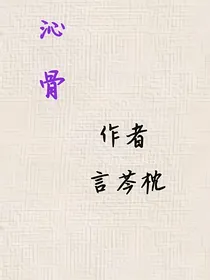 沁骨
作者
言芩枕